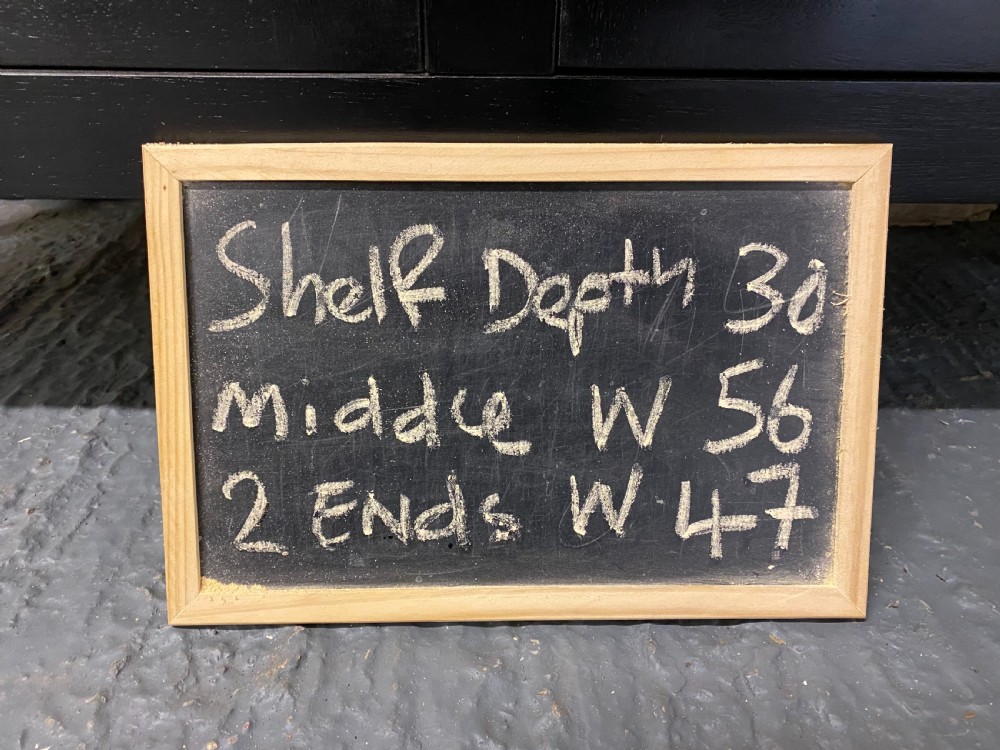 Shelf Depth 30
Middle W 56
2 Ends W 47